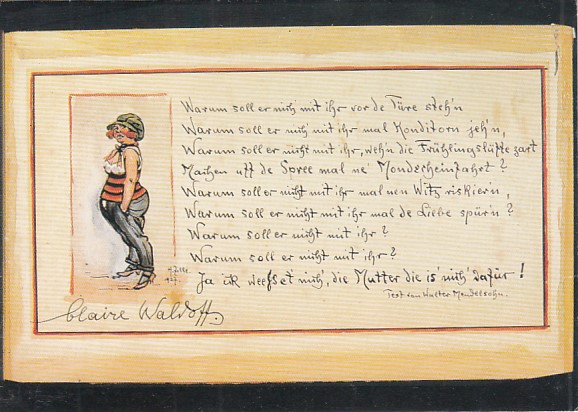 Warum soll er nich mit ihr vor de Türe steh'n
Warum soll er nich mit ihr mal Konditorn jeh'n,
Warum soll er nicht mit ihr, weh'n die Frühlingslüfte zart
Machen uff de Spree mal ne' Mondscheinfahrt?
Warum soll er nicht mit ihr mal nen Witz riskier'n,
Warum soll er nicht mit ihr mal de Liebe spür'n?
Warum soll er nicht mit ihr?
Warum soll er nicht mit ihr?
Ja ick weess et nich', die Mutter die is' nich' dafür!
Text von Walter Mendelsohn.
H. Zille
Claire Waldoff.